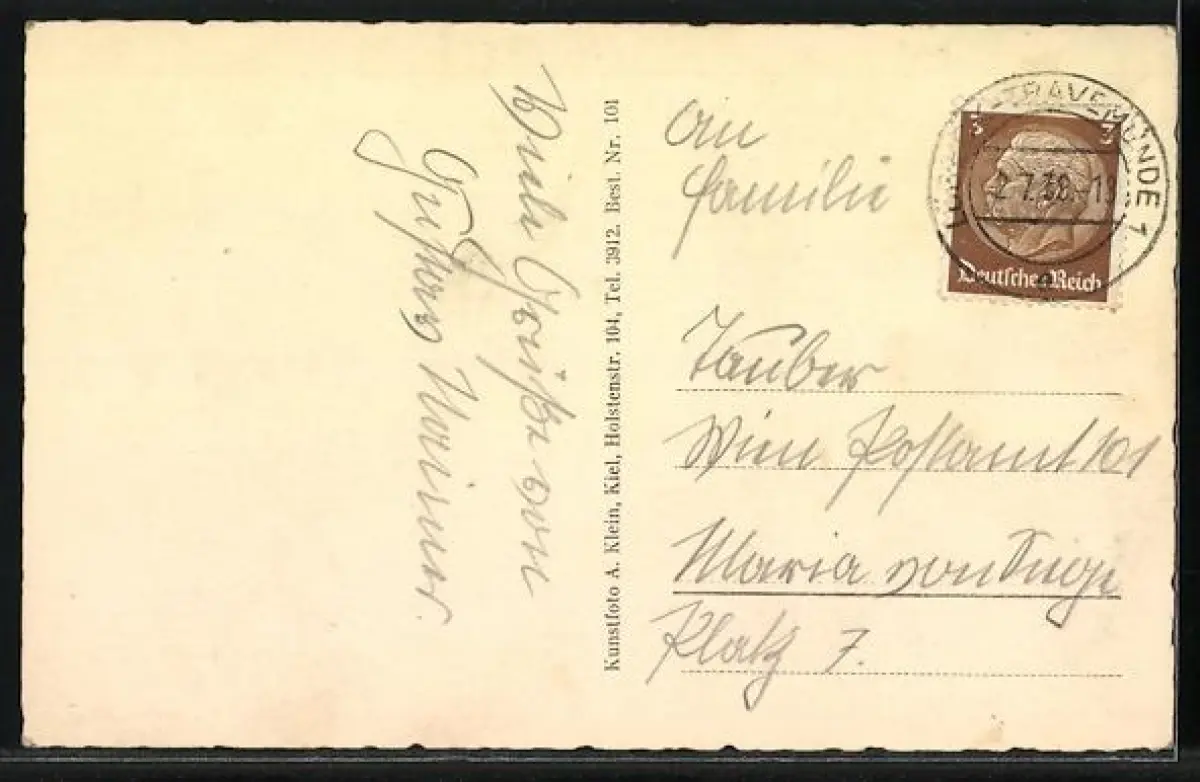 Viele Grüße von
Gustav
Kunstfoto A. Klein, Kiel, Holstenstr. 104, Tel. 3912. Best. Nr. 101
An
Familie
Tauber
Wien Postamt 101
Maria von Siege
Platz 7.
3 3
Deutsches Reich
-TRAVEMÜNDE 1
2.7.38.-1